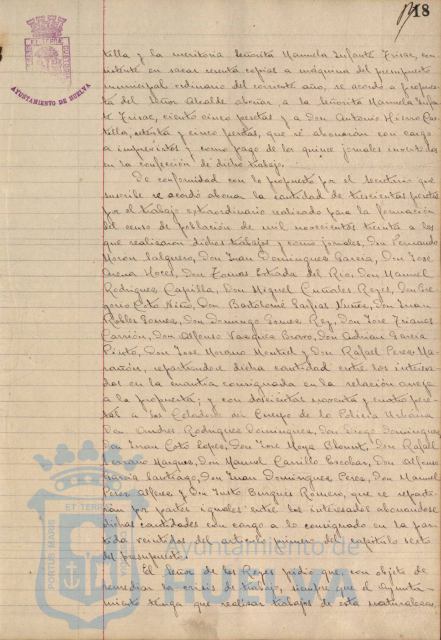 18
AYUNTAMIENTO DE HUELVA
tilla y la meritoria Señorita Manuela Infante Frías, con
sistente en sacar cincuenta copias a máquina del presupuesto
municipal ordinario del corriente año, se acordó a propues
ta del Señor Alcalde abonar, a la Señorita Manuela Infan
te Frías, ciento cinco pesetas y a Don Antonio Hierro Cas
tilla, setenta y cinco pesetas, que se abonarán con cargo
a imprevistos y como pago de los quince jornales invertidos
en la confección de dicho trabajo.
De conformidad con lo propuesto por el Secretario que
suscribe se acordó abonar la cantidad de trescientas pesetas
por el trabajo extraordinario realizado para la formación
del censo de población de mil novecientos treinta a los
que realizaron dichos trabajos y como jornales, Don Fernando
Moron Salguero, Don Juan Dominguez Garcia, Don José
Arena Hoces, Don Tomas Estrada del Rio, Don Manuel
Rodriguez Capilla, Don Miguel Reyes, Don Gre
gorio Coto Niño, Don Bartolomé Nuñez, Don Juan
Robles Gomez, Don Domingo Gomez Rey, Don José Frianes
Carrión, Don Alfonso Vazquez Bravo, Don Adrian Garcia
Pinto, Don José Morano Montiel y Don Rafael Perez Ma
rañon, repartiendose dicha cantidad entre los interesa
dos en la cuantia consignada en la relación aneja
a la propuesta; y con doscientas noventa y cuatro pese
tas a los Celadores del Cuerpo de la Policia Urbana
Don Andres Rodriguez Dominguez, Don Diego Dominguez
Don Juan Coto Lopez, Don José Moya, Don Rafael
Serrano Marquez, Don Manuel Carrillo Escobar, Don Alfonso
Garcia Santiago, Don Juan Dominguez Perez, Don Manuel
Perez y Don Justo Burgues Romero, que se reparti
rian por partes iguales entre los interesados abonandose
dichas cantidades con cargo a lo consignado en la par
tida veintidos del articulo primero del capitulo sexto
del presupuesto.
El Señor de los Reyes pidió que con objeto de
remediar la crisis de trabajo, siempre que el Ayunta
miento tenga que realizar trabajos de esta naturaleza
PORTUS MARIS ET TERRAE
Ayuntamiento de
HUELVA